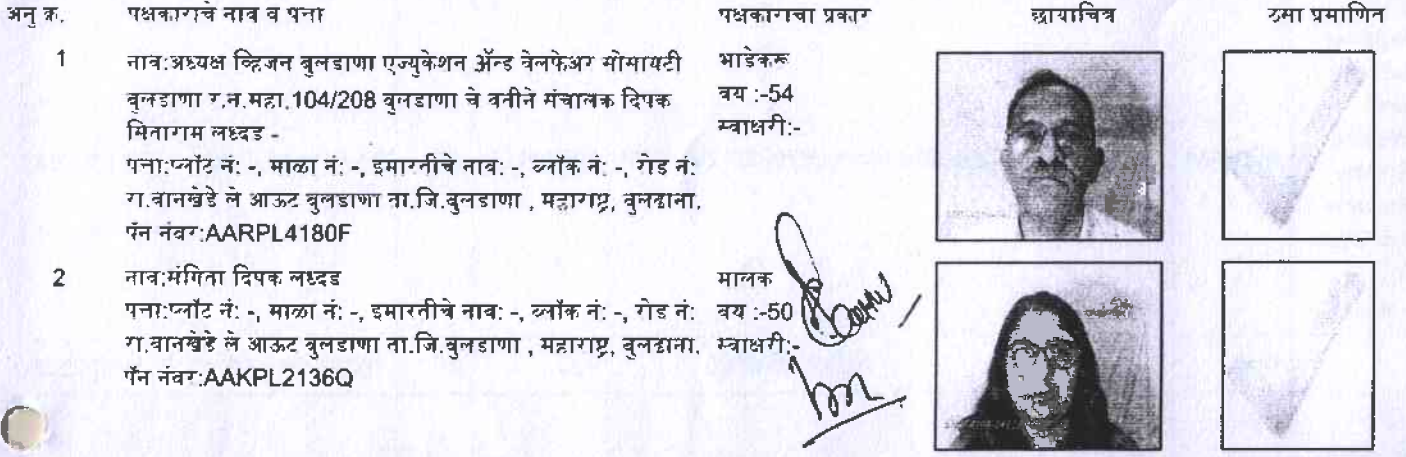 अनु क्र. पक्षकाराचे नाव व पत्ता पक्षकाराचा प्रकार छायाचित्र ठसा प्रमाणित
1 नाव:अध्यक्ष व्हिजन बुलडाणा एज्युकेशन ॲन्ड वेलफेअर सोसायटी भाडेकरू
बुलडाणा र.न.महा.104/208 बुलडाणा चे वतीने संचालक दिपक वय :-54
सिताराम लध्दड - स्वाक्षरी:-
पत्ता:प्लॉट नं: -, माळा नं: -, इमारतीचे नाव: -, ब्लॉक नं: -, रोड नं:
रा.वानखेडे ले आऊट बुलडाणा ता.जि.बुलडाणा , महाराष्ट्र, बुलढाना.
पॅन नंबर:AARPL4180F
2 नाव:संगिता दिपक लध्दड मालक
पत्ता:प्लॉट नं: -, माळा नं: -, इमारतीचे नाव: -, ब्लॉक नं: -, रोड नं: वय :-50
रा.वानखेडे ले आऊट बुलडाणा ता.जि.बुलडाणा , महाराष्ट्र, बुलढाना. स्वाक्षरी:-
पॅन नंबर:AAKPL2136Q